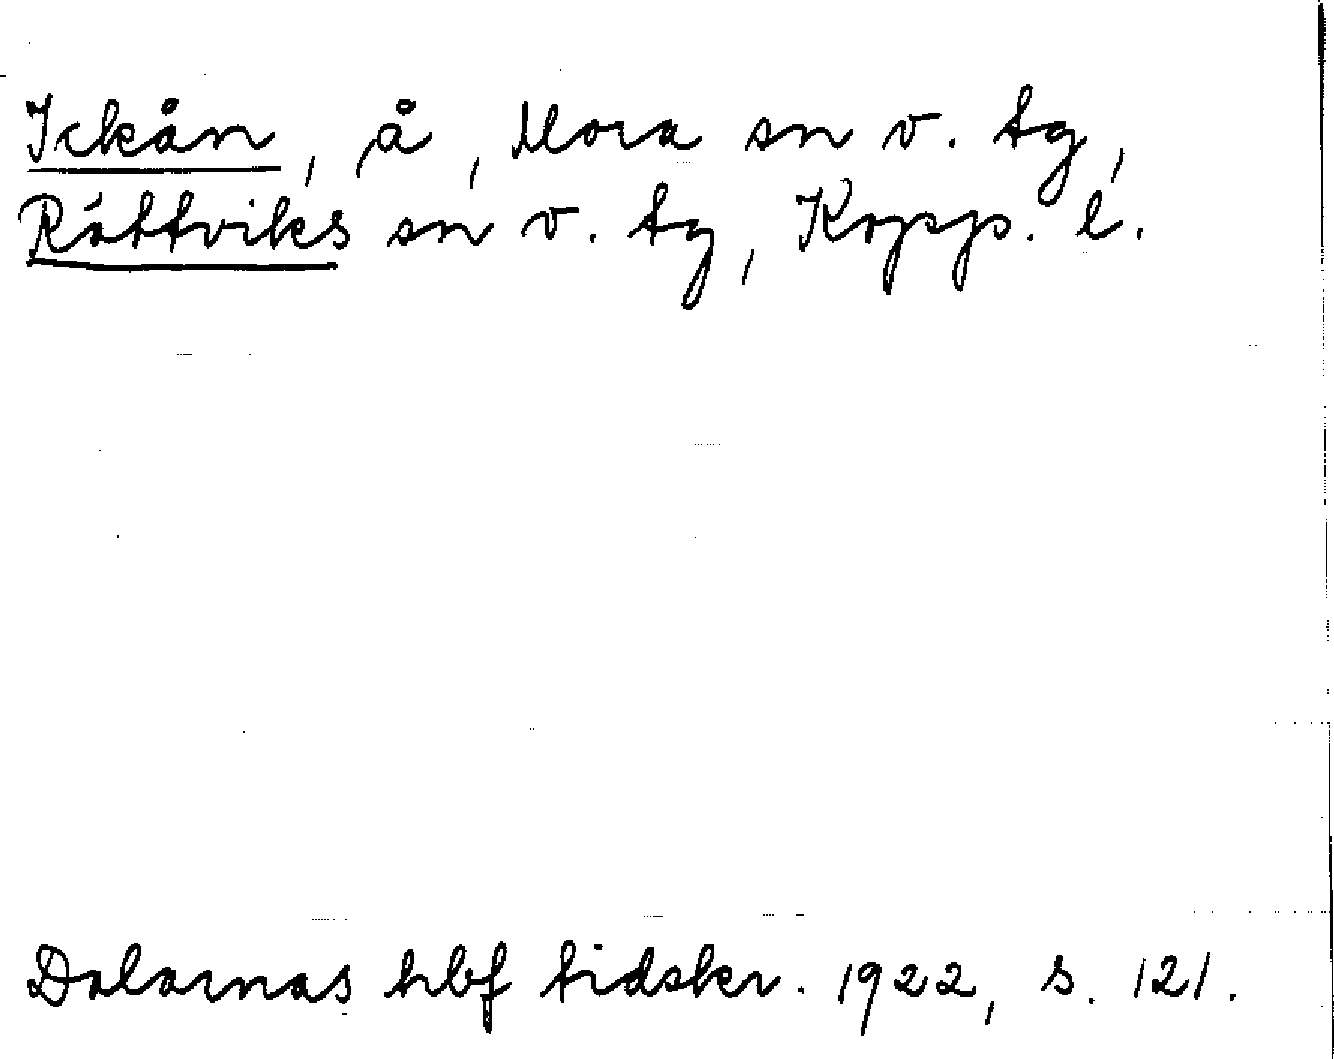 Ickån, å, Mora sn v. tg,
Rättviks sn v. tg, Kopp. l.
Dalarnas hbf tidskr. 1922, s. 121.